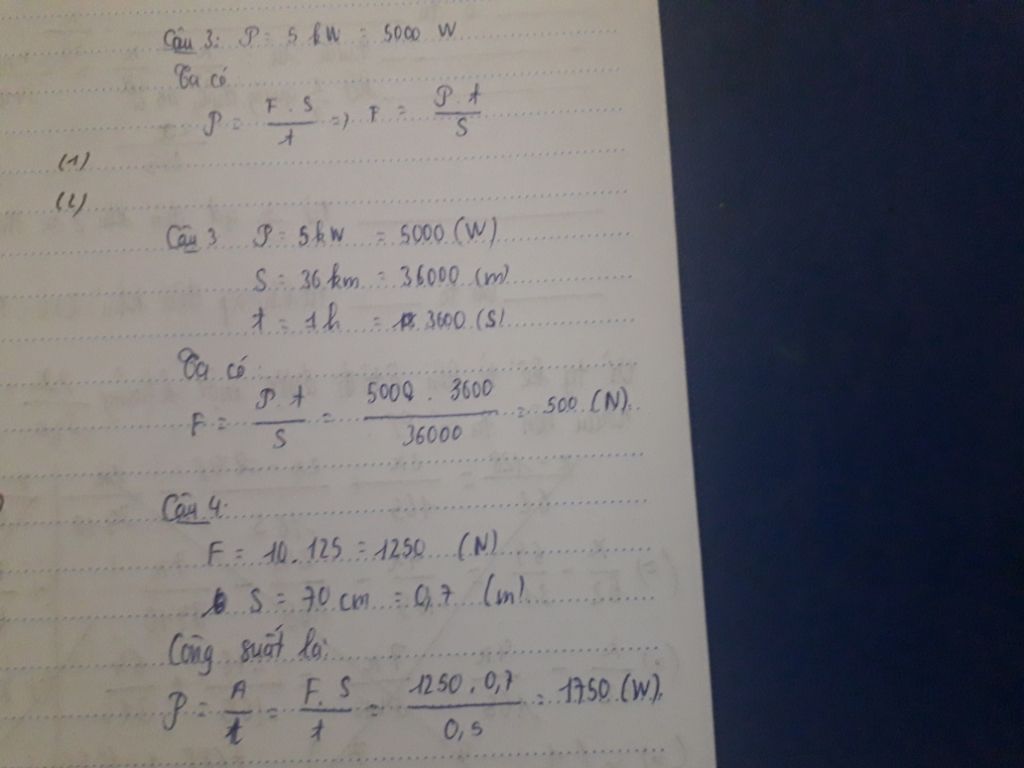 Câu 3: P = 5 kW = 5000 W
Ta có
P = F. S / t => F = P. t / S
(1)
(2)
Câu 3 P = 5kW = 5000 (W)
S = 36 km = 36000 (m)
t = 1h = 3600 (S)
Ta có:
F = P. t / S = 5000 . 3600 / 36000 = 500 (N).
Câu 4:
F = 10. 125 = 1250 (N)
S = 70 cm = 0,7 (m)
Công suất là:
P = A / t = F. S / t = 1250. 0,7 / 0,5 = 1750 (W).